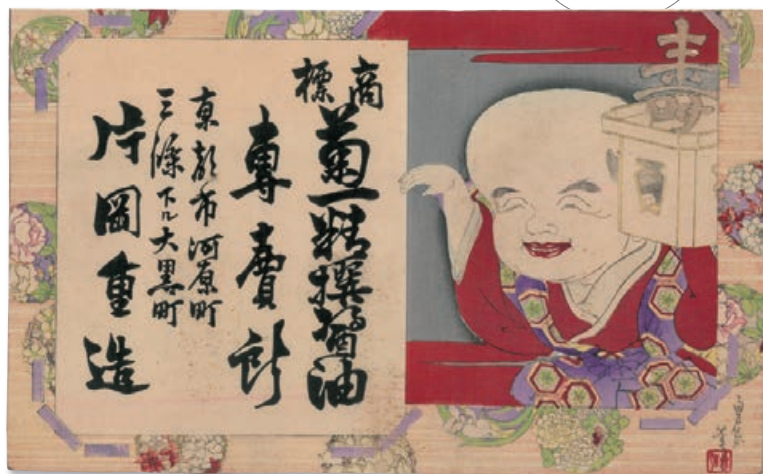 商標
菊一精撰醤油
專賣所
京都市河原町
三條下ル大黒町
片岡重造